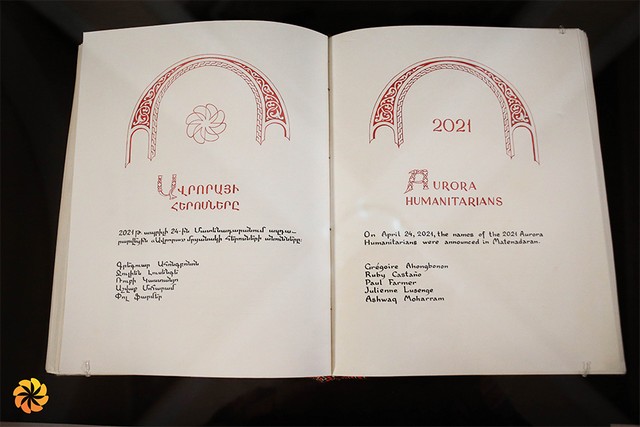 ԱՎՐՈՐԱՅԻ
ՀԵՐՈՍՆԵՐԸ
2021 թ. ապրիլի 24-ին Մատենադարանում ազդա–
րարվեցին «Ավրորա» մրցանակի հերոսների անունները.
Գրեգուար Ահոնգբոնոն
Ջուլիեն Լուսենգե
Ռուբի Կաստանյո
Աշվաք Մոհարամ
Փոլ Ֆարմեր
2021
AURORA
HUMANITARIANS
On April 24, 2021, the names of the 2021 Aurora
Humanitarians were announced in Matenadaran.
Grégoire Ahongbonon
Ruby Castaño
Paul Farmer
Julienne Lusenge
Ashwaq Moharram